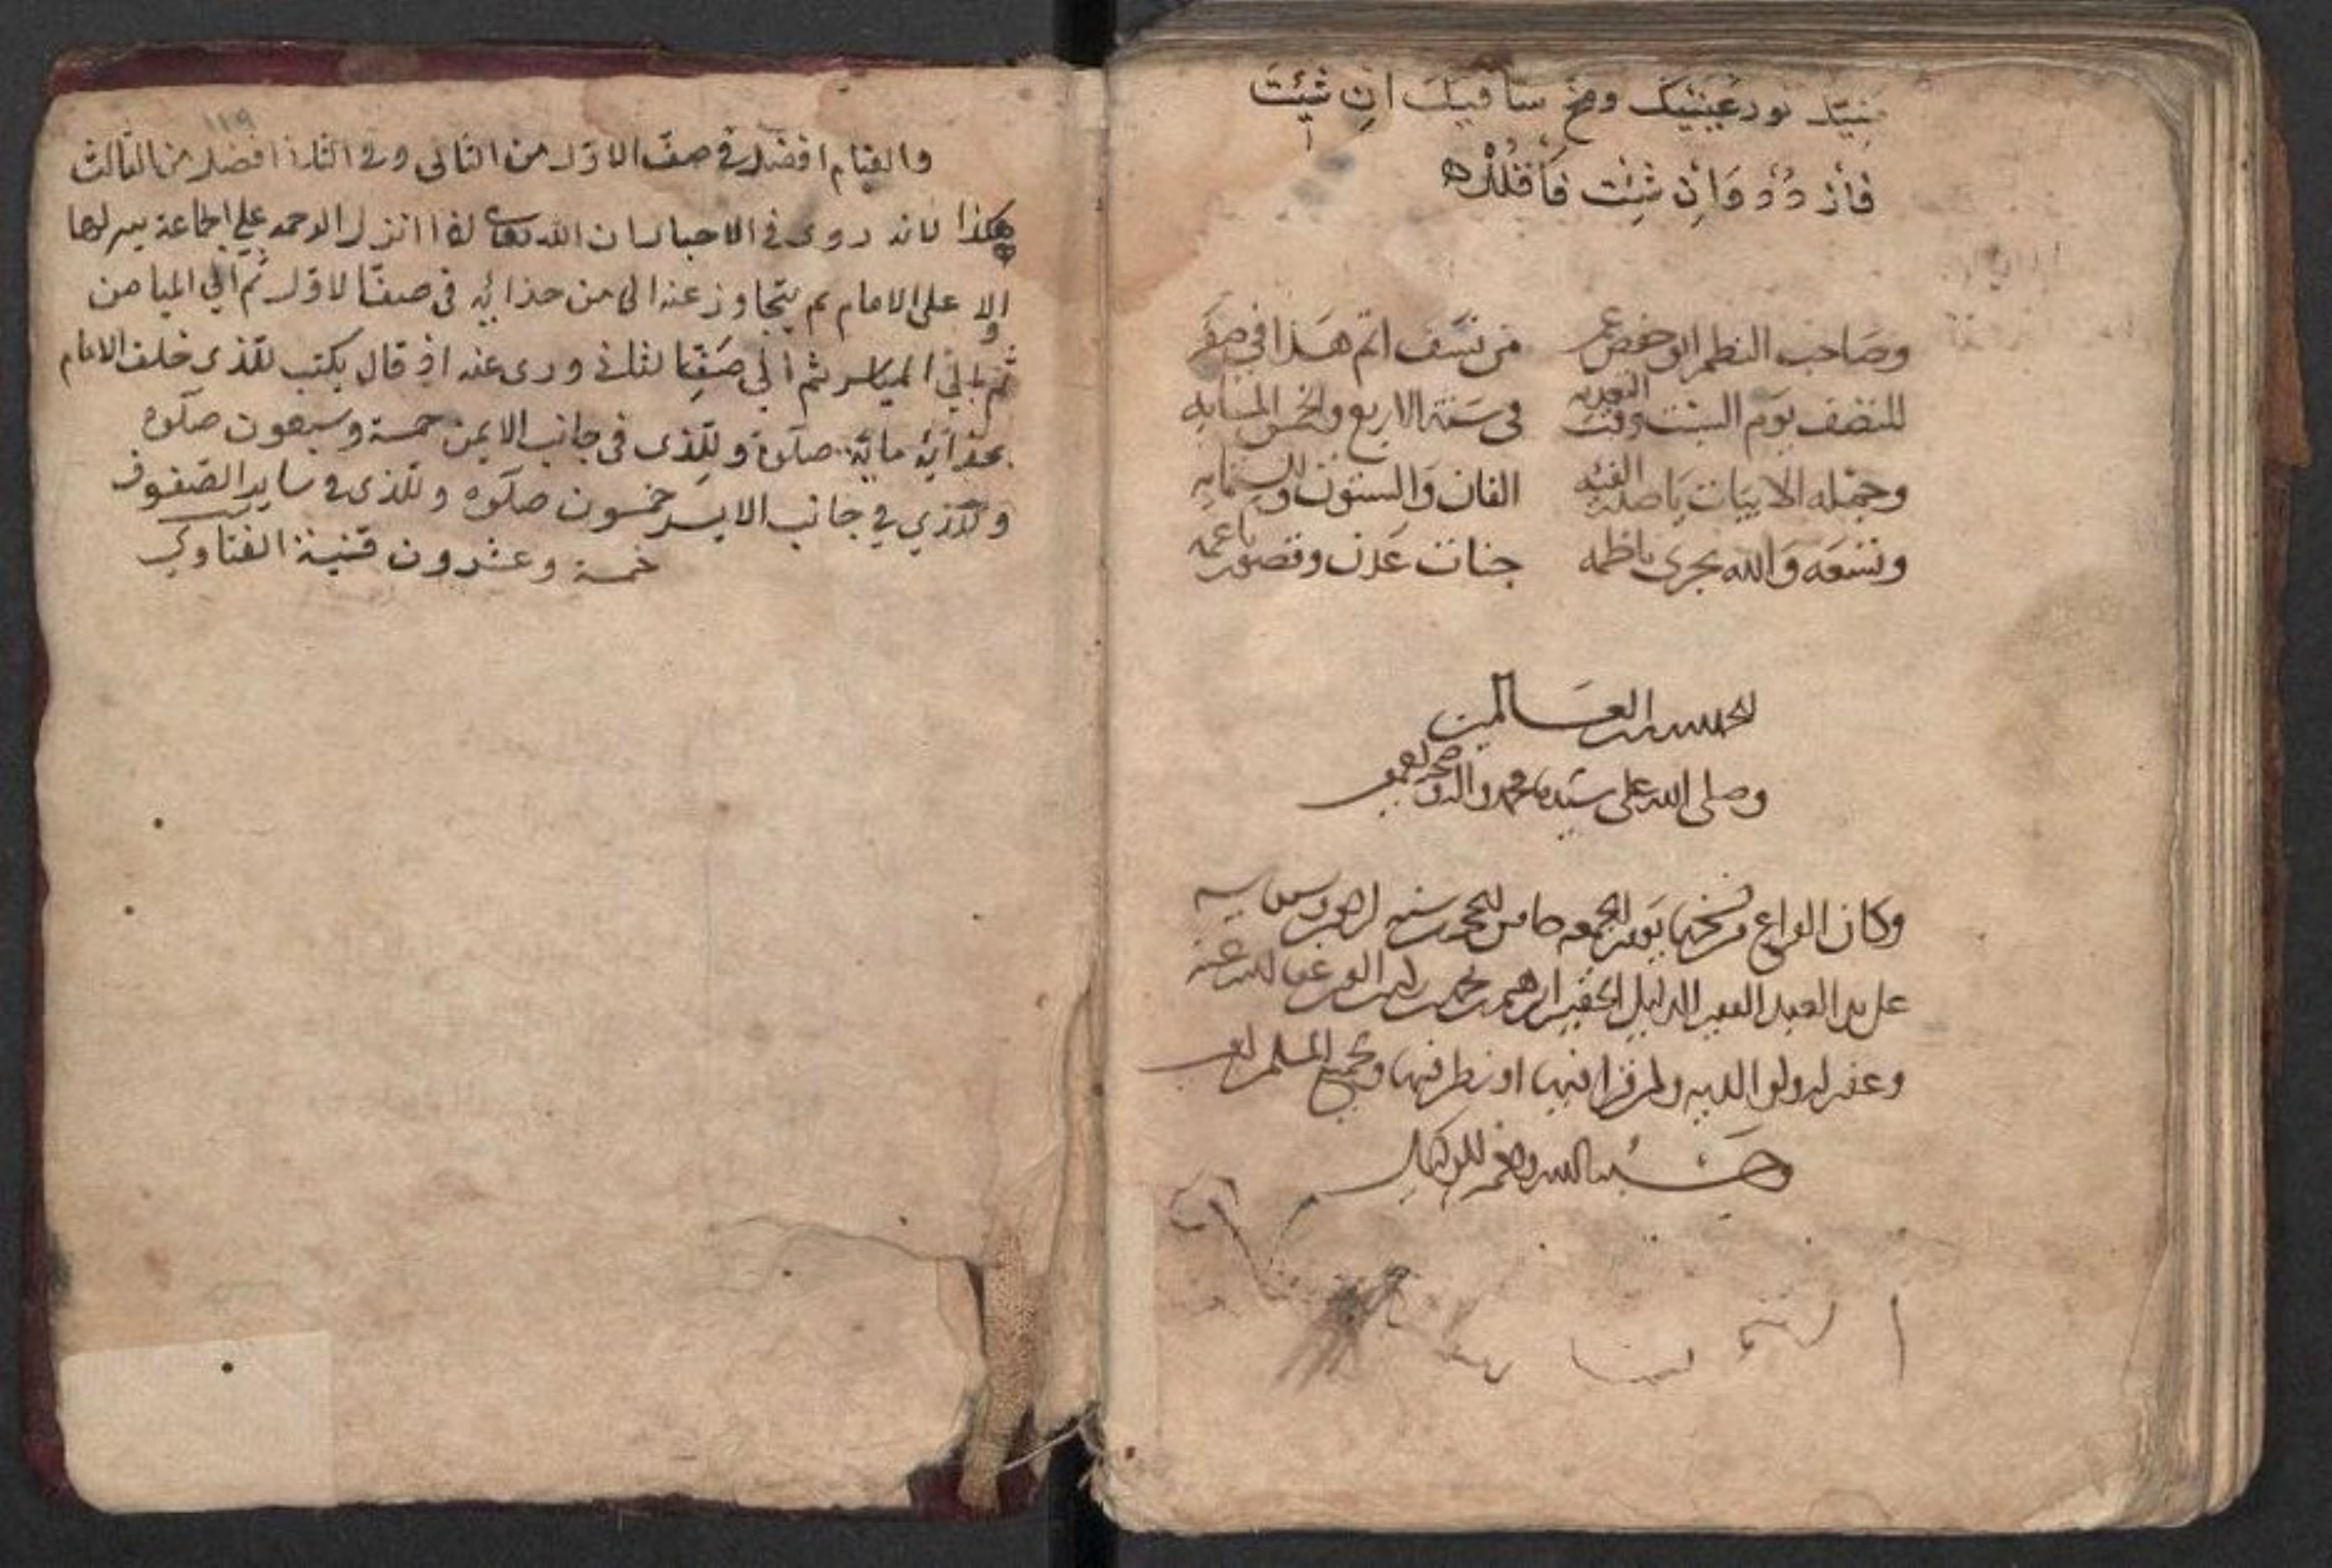 منيك نور عينيك ومخ ساقيك ان شئت
فازدد وان شئت فاقلل
وصاحب النظم ابو حفص عمر من نسف اتم هذا في صفر
للنصف يوم السبت وقت في سنة الاربع والخمس المايه
وجمله الابيات يا الفئه الفان والستون والستمايه
وتسعه والله يجزي ناظمه جنات عدن وقصور ناعمه
الحمد لله رب العالمين
وصلى الله على سيدنا محمد واله وصحبه
وكان الفراغ من نسخها يوم الجمعه خامس سنه
على يد العبد الفقير الذليل الحقير ابرهيم بن محمد بن عفا الله عنه
وغفر له ولوالديه ولمن قرا فيها او نظر فيها ولجميع المسلمين
حسبنا الله ونعم الوكيل
١١٩
والقيام افضل في صف الاول من الثاني وفي الثاني افضل من الثالث
هكذا لانه روى في الاخبار ان الله تعالى اذا انزل الرحمة على الجماعة ينزلها
اولا على الامام ثم يتجاوز عنه الى من حذائه في صف الاول ثم الى الميامن
ثم الى المياسر ثم الى صف الثاني وروى عنه انه قال يكتب للذي خلف الامام
بحذائه مائة صلوة وللذي في جانب الايمن خمسة وسبعون صلوة
وللذي في جانب الايسر خمسون صلوة وللذي في ساير الصفوف
خمسة وعشرون قنية الفتاوي